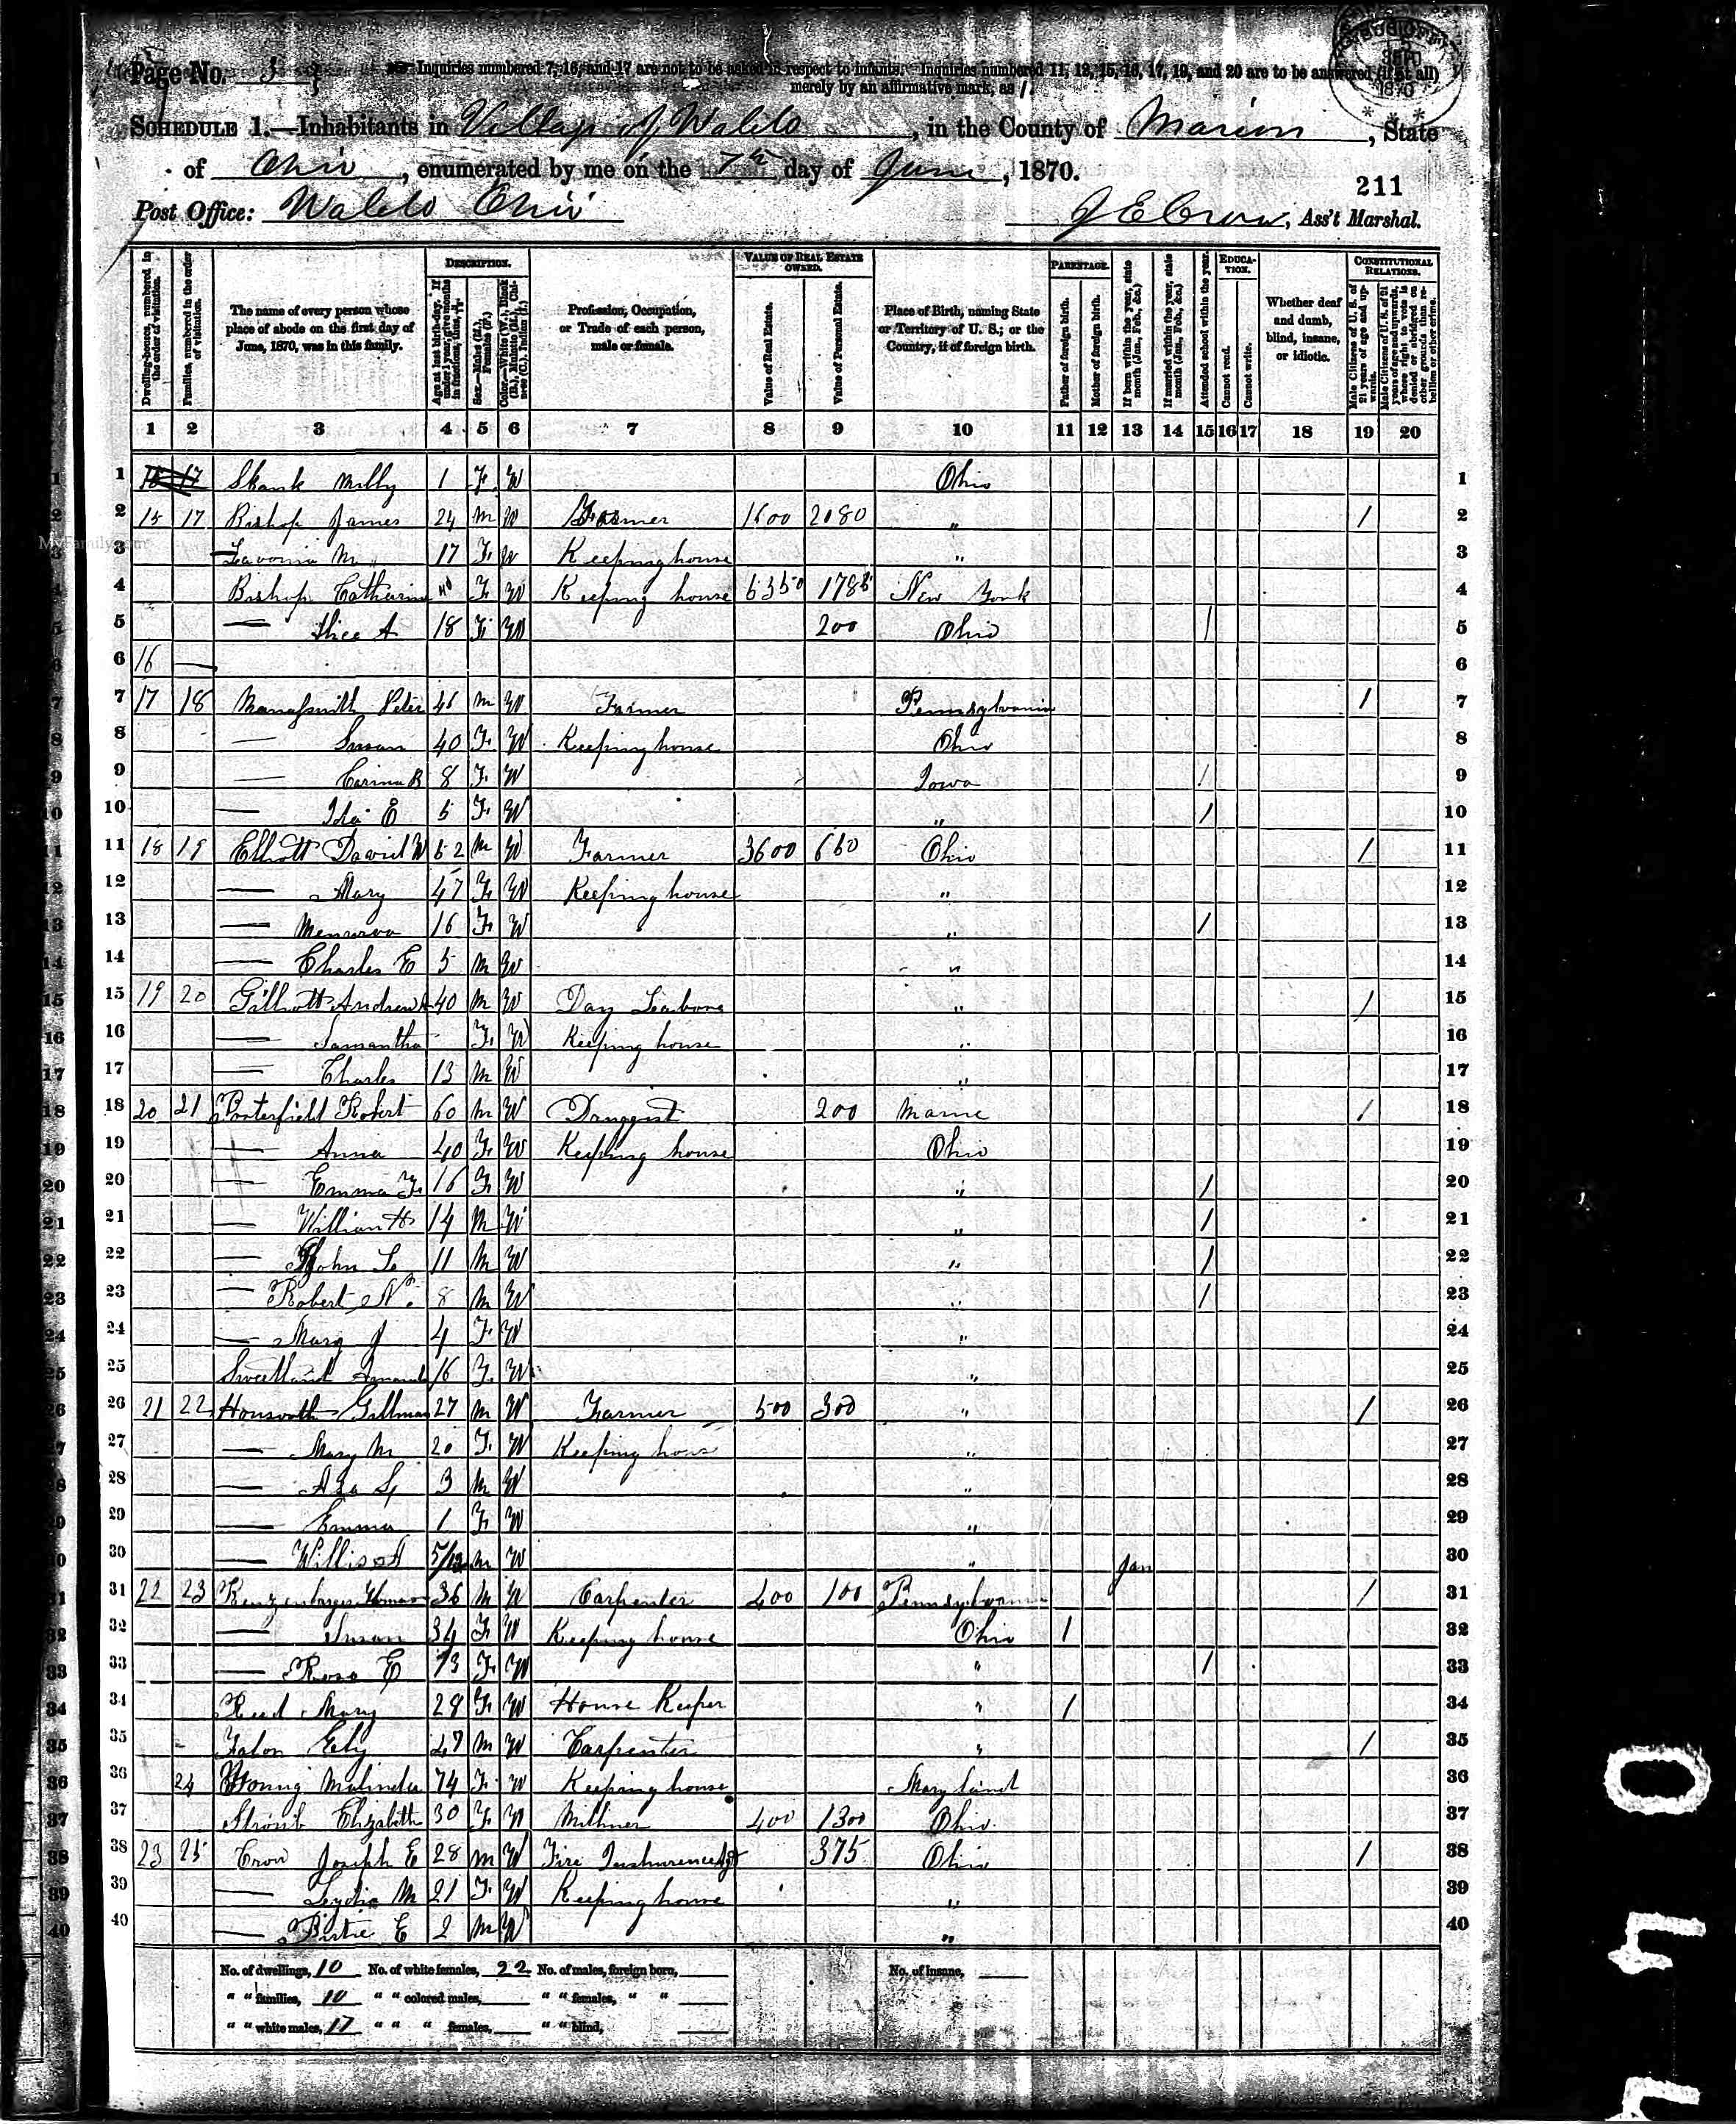 Page No. 3
☞ Inquiries numbered 7, 16, and 17 are not to be asked in respect to infants. Inquiries numbered 11, 12, 15, 16, 17, 19, and 20 are to be answered (if at all)
merely by an affirmative mark, as /.
SCHEDULE 1.—Inhabitants in Village of Waldo, in the County of Marion, State
of Ohio, enumerated by me on the 7th day of June, 1870.
211
Post Office: Waldo Ohio J E Crow, Ass't Marshal.
Dwelling-houses, numbered in the order of visitation.
Families, numbered in the order of visitation.
The name of every person whose place of abode on the first day of June, 1870, was in this family.
DESCRIPTION.
Age at last birth-day. If under 1 year, give months in fractions, thus,
Sex.—Males (M.), Females (F.)
Color.—White (W.), Black (B.), Mulatto (M.), Chinese (C.), Indian (I.)
Profession, Occupation, or Trade of each person, male or female.
VALUE OF REAL ESTATE OWNED.
Value of Real Estate.
Value of Personal Estate.
Place of Birth, naming State or Territory of U. S.; or the Country, if of foreign birth.
PARENTAGE.
Father of foreign birth.
Mother of foreign birth.
If born within the year, state month (Jan., Feb., &c.)
If married within the year, state month (Jan., Feb., &c.)
Attended school within the year.
EDUCATION.
Cannot read.
Cannot write.
Whether deaf and dumb, blind, insane, or idiotic.
CONSTITUTIONAL RELATIONS.
Male Citizens of U. S. of 21 years of age and upwards.
Male Citizens of U. S. of 21 years of age and upwards, whose right to vote is denied or abridged on other grounds than rebellion or other crime.
1 2 3 4 5 6 7 8 9 10 11 12 13 14 15 16 17 18 19 20
1 17 Shank Milly 1 F W Ohio 1
2 15 17 Bishop James 24 M W Farmer 1600 2080 " / 2
3 Lavonia M 17 F W Keeping house " 3
4 Bishop Catharine 40 F W Keeping house 6350 1785 New York 4
5 — Alice A 18 F W 200 Ohio / 5
6 16 — 6
7 17 18 Peter 46 M W Farmer Pennsylvania / 7
8 — Susan 40 F W Keeping house Ohio 8
9 — B 8 F W Iowa / 9
10 — Ida E 5 F W " / 10
11 18 19 Elliott David W 52 M W Farmer 3600 650 Ohio / 11
12 — Mary 47 F W Keeping house " 12
13 — 16 F W " / 13
14 — Charles E 5 M W " 14
15 19 20 Andrew 40 M W Day Labore " / 15
16 — Samantha F W Keeping house " 16
17 — Charles 13 M W " 17
18 20 21 Porterfield Robert 60 M W Druggist 200 Maine / 18
19 — Anna 40 F W Keeping house Ohio 19
20 — Emma F 16 F W " / 20
21 — William H 14 M W " / 21
22 — John L 11 M W " / 22
23 — Robert N. 8 M W " / 23
24 — Mary J 4 F W " 24
25 Sweetland Amanda 16 F W " 25
26 21 22 Gillman 27 M W Farmer 500 300 " / 26
27 — Mary M 20 F W Keeping hous " 27
28 — Asa S 3 M W " 28
29 — Emma 1 F W " 29
30 — Willis A 5/12 M W " Jan 30
31 22 23 36 M W Carpenter 400 100 Pennsylvania / 31
32 — Susan 34 F W Keeping house Ohio / 32
33 — Rosa E 13 F W " / 33
34 Reed Mary 28 F W House Keeper " / 34
35 M W Carpenter " / 35
36 24 Young Malinda 74 F W Keeping house Maryland 36
37 Elizabeth 30 F W Milliner 400 1300 Ohio 37
38 23 25 Crow Joseph E 28 M W Fire Inshurence Agt 375 Ohio / 38
39 — Lydia M 21 F W Keeping house " 39
40 — E 2 M W " 40
No. of dwellings, 10 No. of white females, 22 No. of males, foreign born, No. of insane,
" " families, 10 " " colored males, " " females, " "
" " white males, 17 " " " females, " " blind,